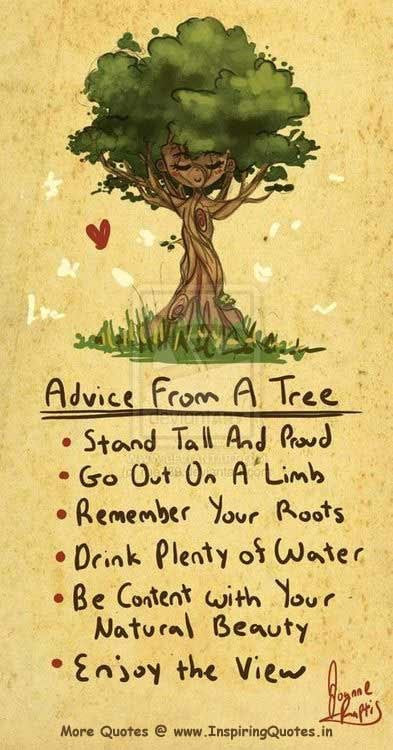 Advice From A Tree
• Stand Tall And Proud
• Go Out On A Limb
• Remember Your Roots
• Drink Plenty of Water
• Be Content with Your
Natural Beauty
• Enjoy the View
Joanne
More Quotes @ www.InspiringQuotes.in